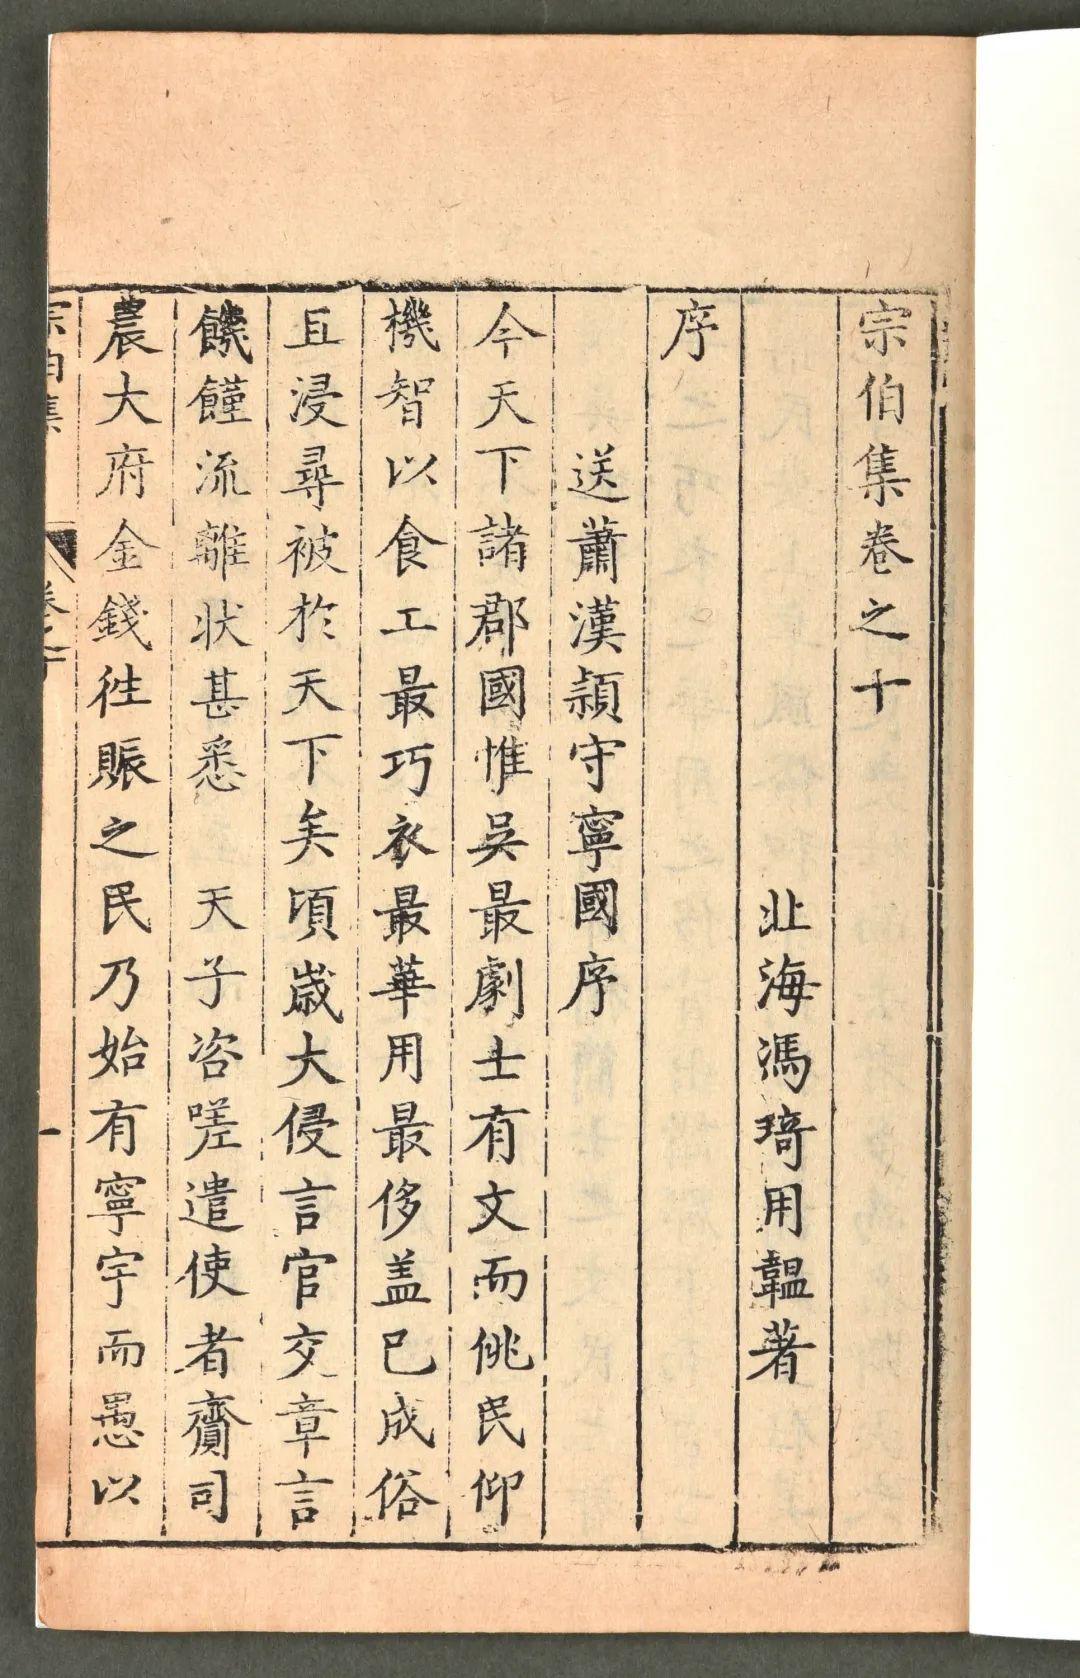 宗伯集卷之十
北海馮琦用韞著
序
送蕭漢頴守寧國序
今天下諸郡國惟吳最劇士有文而佻民仰
機智以食工最巧衣最華用最侈盖已成俗
且浸尋被於天下矣頃歲大侵言官交章言
饑饉流離狀甚悉　天子咨嗟遣使者齎司
農大府金錢徃賑之民乃始有寧宇而愚以
宗伯集
卷之十
一